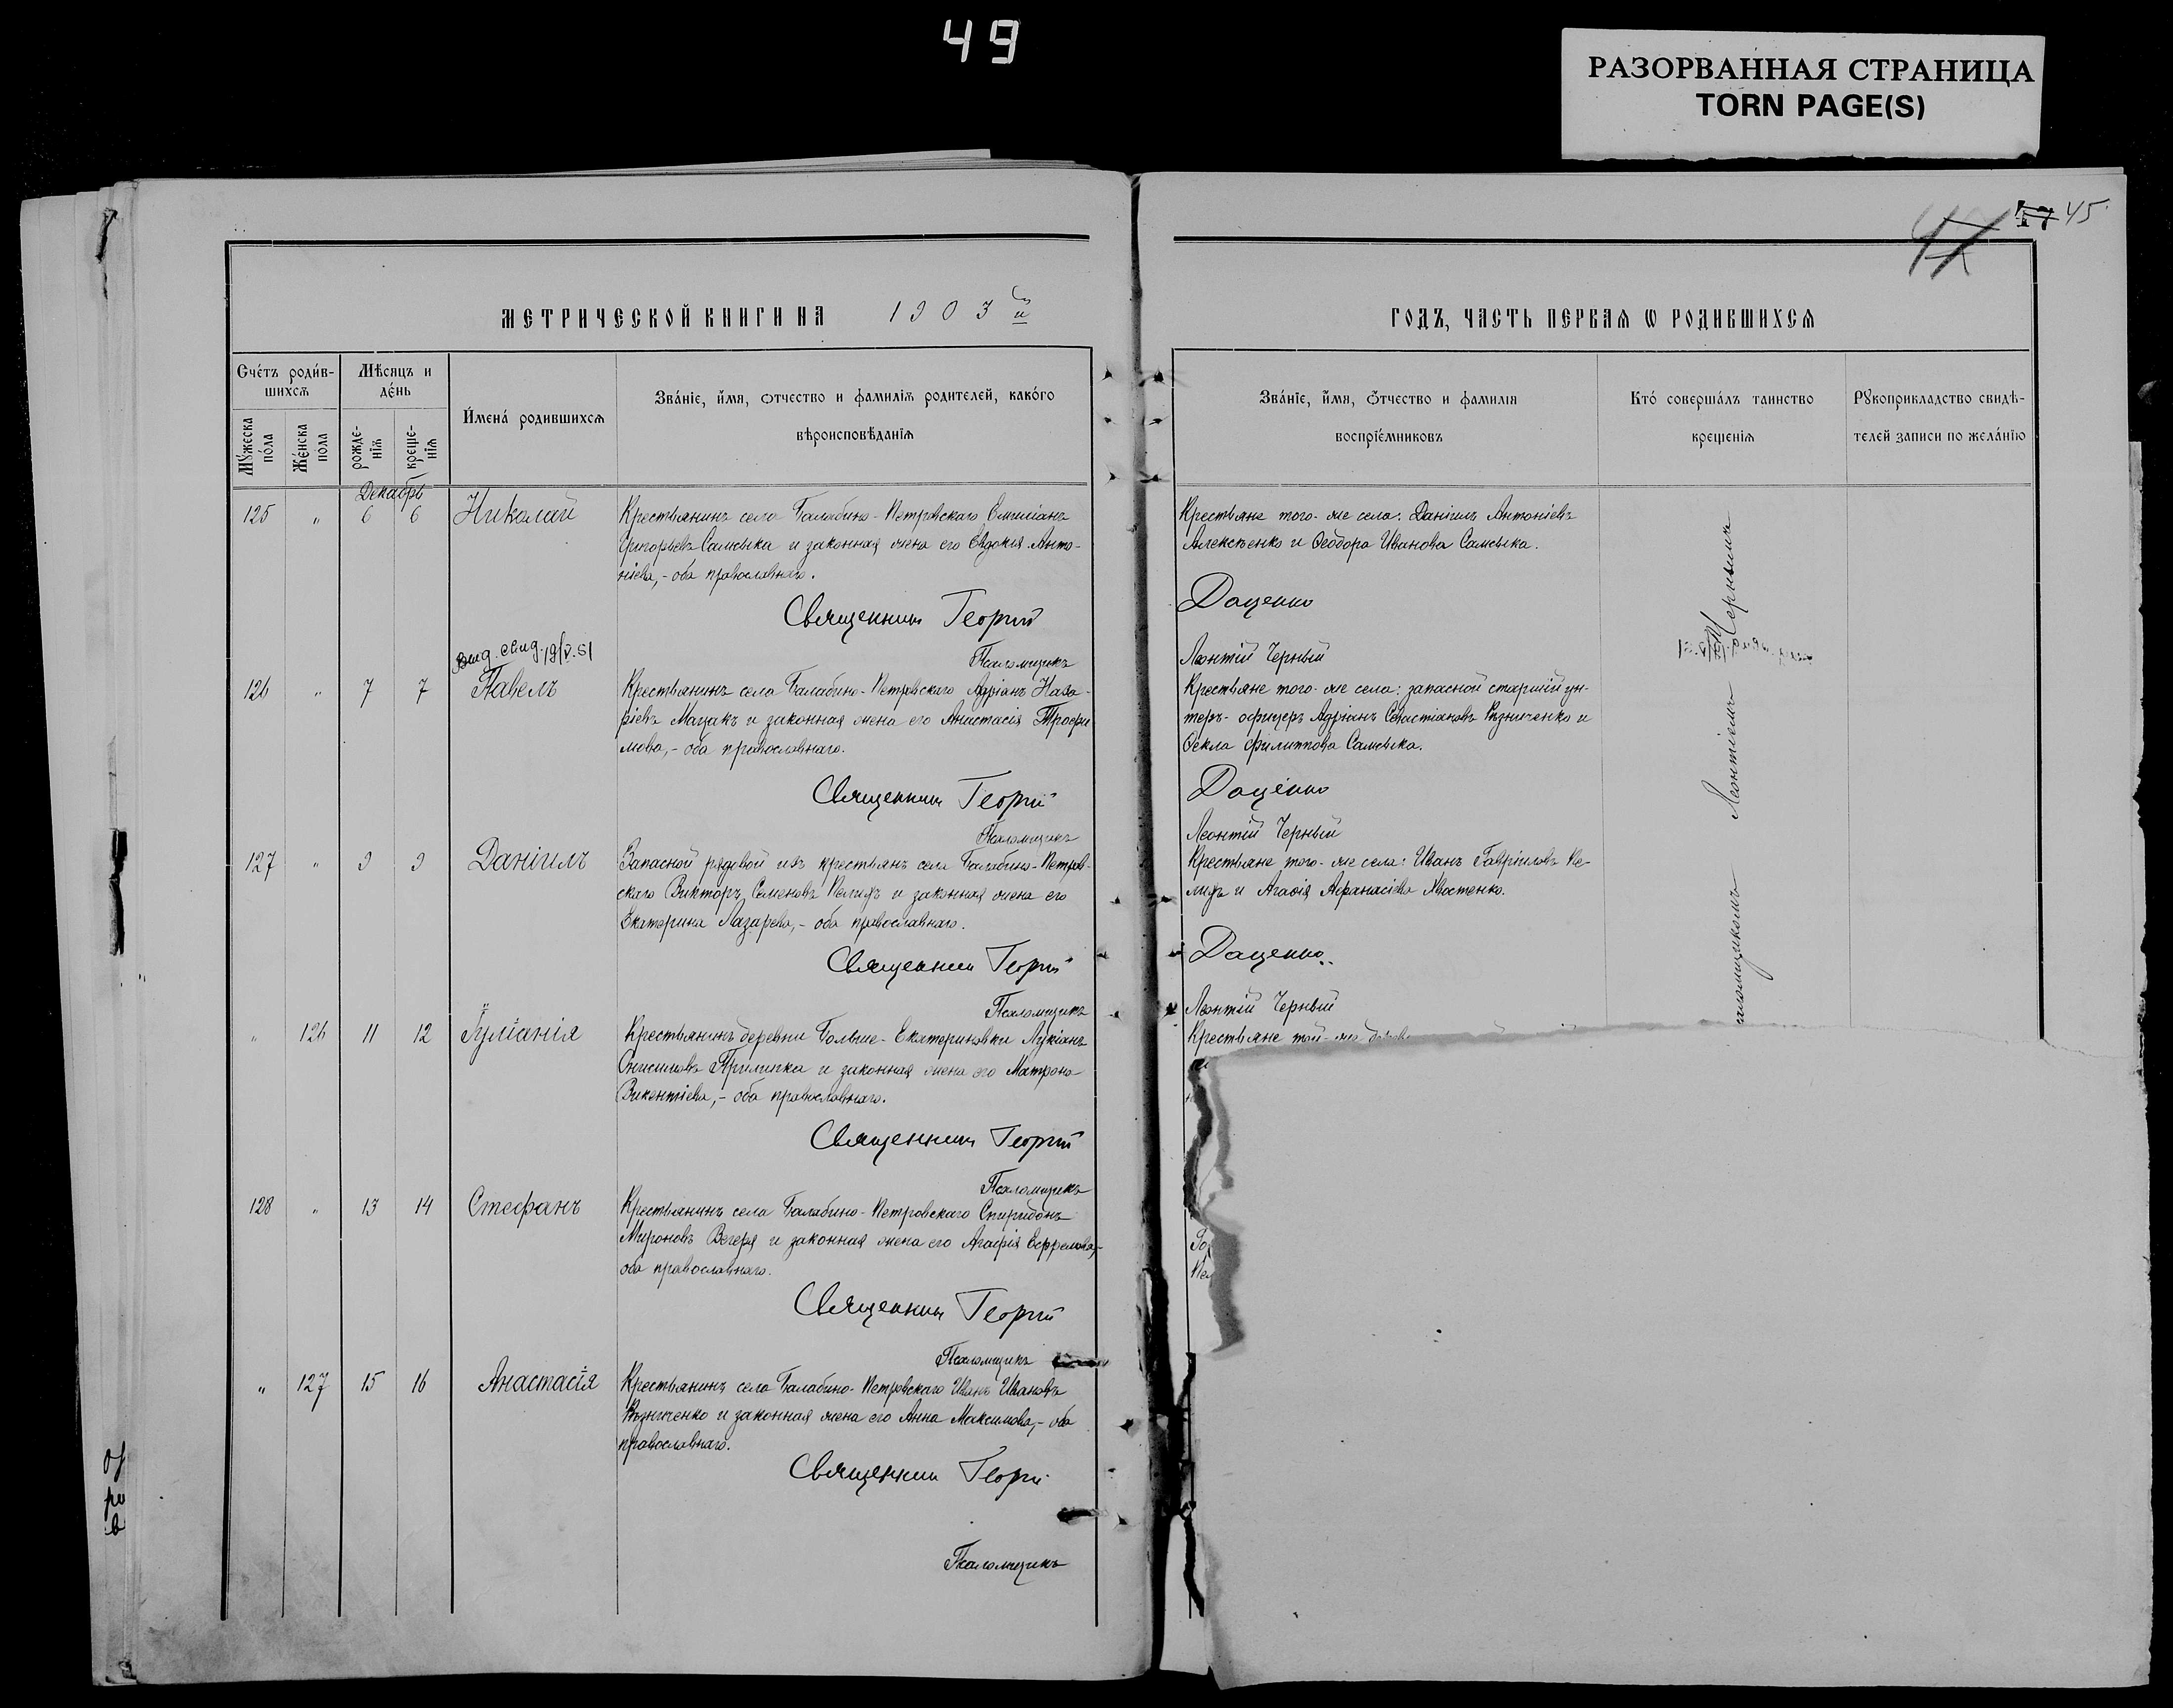 49
РАЗОРВАННАЯ СТРАНИЦА
TORN PAGE(S)
45
47
МЕТРИЧЕСКОЙ КНИГИ НА 1903й
ГОДЪ, ЧАСТЬ ПЕРВАЯ Ѡ РОДИВШИХСЯ
Счéтъ роди́в-
шихсѧ
Мѣсяцъ и
дéнь
Мꙋ́жеска
пóла
Жéнска
пола
рожде-
нїѧ
креще-
нїя
И҆мена́ родившихсѧ
Зва́нїе, и҆́мя, ѻтчество и фамилїѧ родителей, како́го
вѣроисповѣ́данїѧ
Зва́нїе, и҆́мя, ѻ҆тчество и фамилія
воспрїе́мниковъ
Кто́ соверша́лъ таинство
крещенїѧ
Рꙋкоприкладство свидѣ-
телей записи по жела́нїю
Декабрь
125 " 6 6 Николай
Крестьянинъ села Балабино-Петровскаго Емиліанъ
Григорьевъ Самсыка и законная жена его Евдокія Анто-
ніева,- оба православнаго.
Священникъ Георгій
Псаломщикъ
Крестьяне того-же села: Даніилъ Антоніевъ
Алексѣенко и Ѳеодора Иванова Самсыка.
Даценко
Леонтій Черный
выд. свид. 19/V.51
126 " 7 7 Павелъ
Крестьянинъ села Балабино-Петровскаго Адріанъ Наза-
ріевъ Мацакъ и законная жена его Анастасія Трофи
мова,- оба православнаго.
Священникъ Георгій
Псаломщикъ
Крестьяне того-же села: запасной старшій ун-
теръ-офицеръ Адріанъ Севастіановъ Рѣзниченко и
Ѳекла Филиппова Самсыка.
Даценко
Леонтій Черный
127 " 9 9 Даніилъ
Запасной рядовой изъ крестьянъ села Балабино-Петров-
скаго Викторъ Семеновъ Пелихъ и законная жена его
Екатерина Лазарева,- оба православнаго.
Священникъ Георгій
Псаломщикъ
Крестьяне того-же села: Иванъ Гавріиловъ Пе-
лихъ и Агаѳія Афанасіева Хвостенко.
Даценко
Леонтій Черный
саломщикомъ Леонтіемъ Чернымъ
" 126 11 12 Іуліанія
Крестьянинъ деревни Больше-Екатериновки Лукіанъ
Онисимовъ Прилипка и законная жена его Матрона
Викентіева,- оба православнаго.
Священникъ Георгій
Псаломщикъ
Крестьяне той-же
128 " 13 14 Стефанъ
Крестьянинъ села Балабино-Петровскаго Спиридонъ
Мироновъ Вечеря и законная жена его Агафія Ефремова,-
оба православнаго.
Священникъ Георгій
Псаломщикъ
Пел
" 127 15 16 Анастасія
Крестьянинъ села Балабино-Петровскаго Иванъ Ивановъ
Рѣзниченко и законная жена его Анна Максимова,- оба
православнаго.
Священникъ Георгій
Псаломщикъ